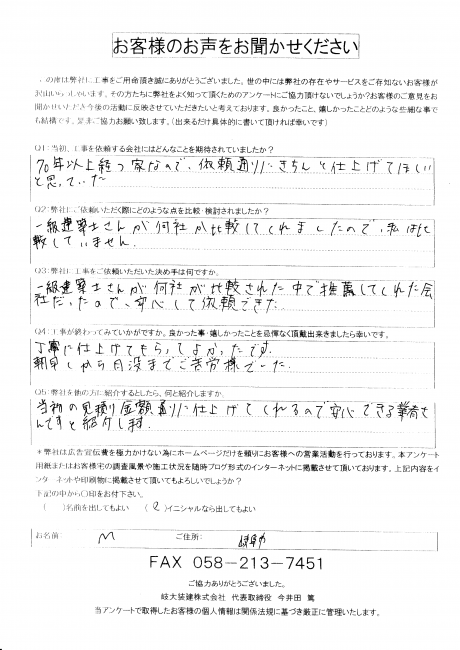 お客様のお声をお聞かせください
の度は弊社に工事をご用命頂き誠にありがとうございました。世の中には弊社の存在やサービスをご存知ないお客様が
沢山いらっしゃいます。その方たちに弊社をよく知って頂くためのアンケートにご協力頂けないでしょうか?お客様のご意見をお
聞かせいただき今後の活動に反映させていただきたいと考えております。良かったこと、嬉しかったことどのような些細な事で
も結構です、是非ご協力お願い致します。(出来るだけ具体的に書いて頂ければ幸いです)
Q1:当初、工事を依頼する会社にはどんなことを期待されていましたか?
70年以上経つ家なので、依頼通りにきちんと仕上げてほしい
と思っていた
Q2:弊社にご依頼いただく際にどのような点を比較・検討されましたか?
一級建築士さんが何社か比較してくれましたので、私は比
較していません。
Q3:弊社に工事をご依頼いただいた決め手は何ですか。
一級建築士さんが何社か比較された中で推薦してくれた会
社だったので、安心して依頼できた。
Q4:工事が終わってみていかがですか。良かった事・嬉しかったことを忌憚なく頂戴出来きましたら幸いです。
丁寧に仕上げてもらってよかったです。
朝早くから日没までご苦労様でした。
Q5:弊社を他の方に紹介するとしたら、何と紹介しますか。
当初の見積り金額通りに仕上げてくれるので安心できる業者さ
んですと紹介します。
*弊社は広告宣伝費を極力かけない為にホームページだけを頼りにお客様への営業活動を行っております。本アンケート
用紙またはお客様宅の調査風景や施工状況を随時ブログ形式のインターネットに掲載させて頂いております。上記内容をイ
ンターネットや印刷物に掲載させて頂いてもよろしいでしょうか?
下記の中から○印をお付下さい。
( )名前を出してもよい ( )イニシャルなら出してもよい
お名前: M ご住所: 岐阜市
FAX 058-213-7451
ご協力ありがとうございました。
岐大装建株式会社 代表取締役 今井田 篤
当アンケートで取得したお客様の個人情報は関係法規に基づき厳正に管理いたします。